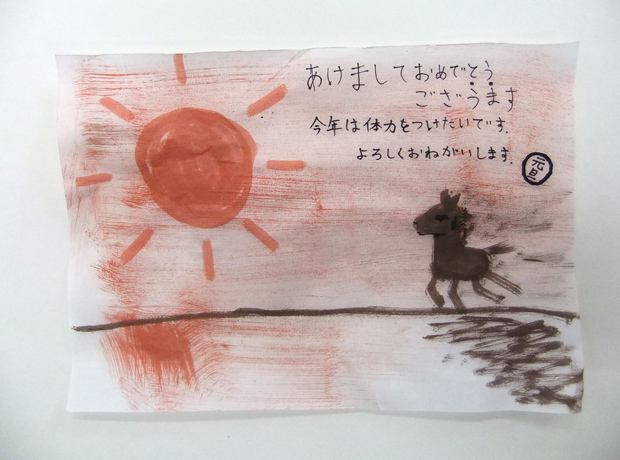 あけましておめでとう
ござうます
今年は体力をつけたいです.
よろしくおねがいします.
元旦